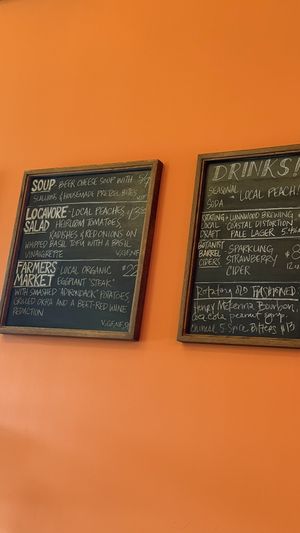 SOUP BEER CHEESE SOUP WITH 5/7
SCALLIONS & HOUSEMADE PRETZEL BITES
LOCAVORE -LOCAL PEACHES, 13
SALAD HEIRLOOM TOMATOES,
RADISHES & RED ONIONS ON
WHIPPED BASIL TOFU WITH A BASIL
VINAIGRETTE V,GF,NF
FARMERS LOCAL ORGANIC $22
MARKET EGGPLANT "STEAK"
WITH SMASHED "ADIRONDACK" POTATOES
GRILLED OKRA AND A BEET-RED WINE
REDUCTION V,GF,NF,
DRINKS!
SEASONAL
SODA -LOCAL PEACH
ROTATING LINNWOOD BREWING
LOCAL COASTAL DISTORTION
DRAFT PALE LAGER 5.4%
BOTANIST
BARREL SPARKLING $8
CIDERS STRAWBERRY
CIDER
Rotating Old FASHIONED
Henry McKenna Bourbon,
coca cola peanut syrup,
5-Spice Bitters $13